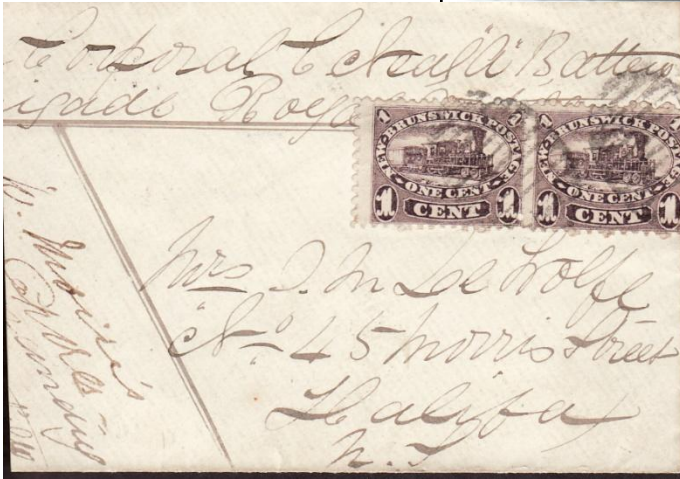 Corporal C Neal "A" Battery
Brigade Royal
1 NEW-BRUNSWICK POSTAGE 1
ONE CENT
1 CENT 1
1 NEW-BRUNSWICK POSTAGE
ONE CENT
1 CENT 1
Mrs I. M De Wolfe
No 45 Morris Street
Halifax
N. S